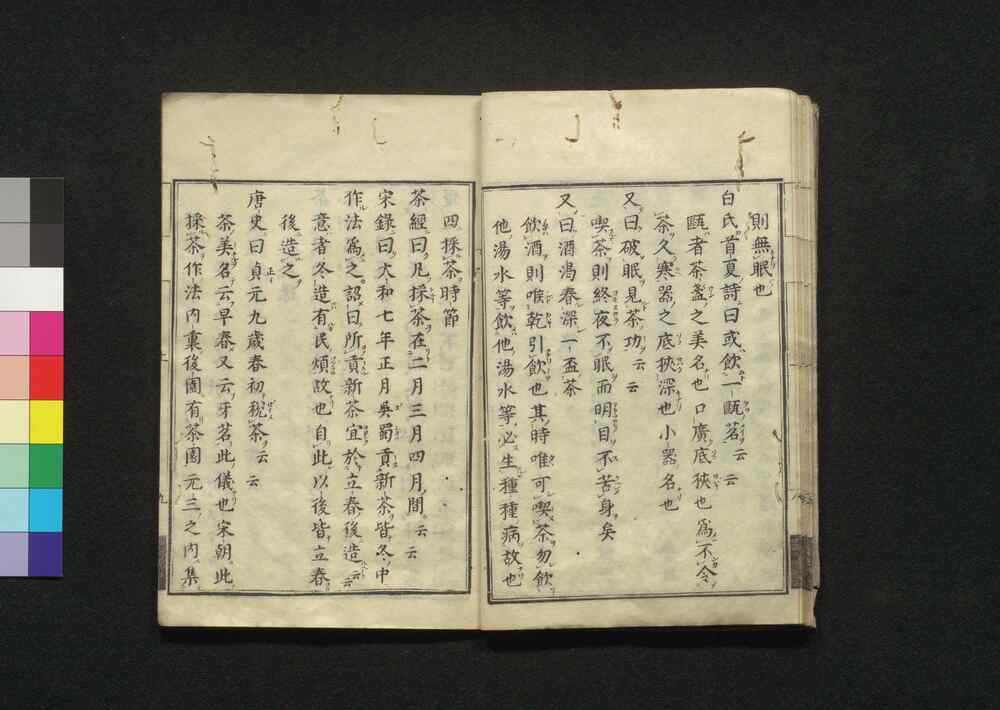 則無眠也
白氏首夏詩曰或飲一甌茗云云
甌者茶盞之美名也口廣底狹也為不令
茶久寒器之底狹深也小器名也
又曰破眠見茶功云云
喫茶則終夜不眠而明目不苦身矣
又曰酒渴春深一盃茶
飲酒則喉乾引飲也其時唯可喫茶勿飲
他湯水等飲他湯水等必生種種病故也
四採茶時節
茶經曰凡採茶在二月三月四月間云云
宋錄曰大和七年正月吳蜀貢新茶皆冬中
作法為之詔曰所貢新茶宜於立春後造云云
意者冬造有民煩故也自此以後皆立春
後造之
唐史曰貞元九歲春初稅茶云云
茶美名云早春又云牙茗此儀也宋朝此
採茶作法內裏後園有茶園元三之內集